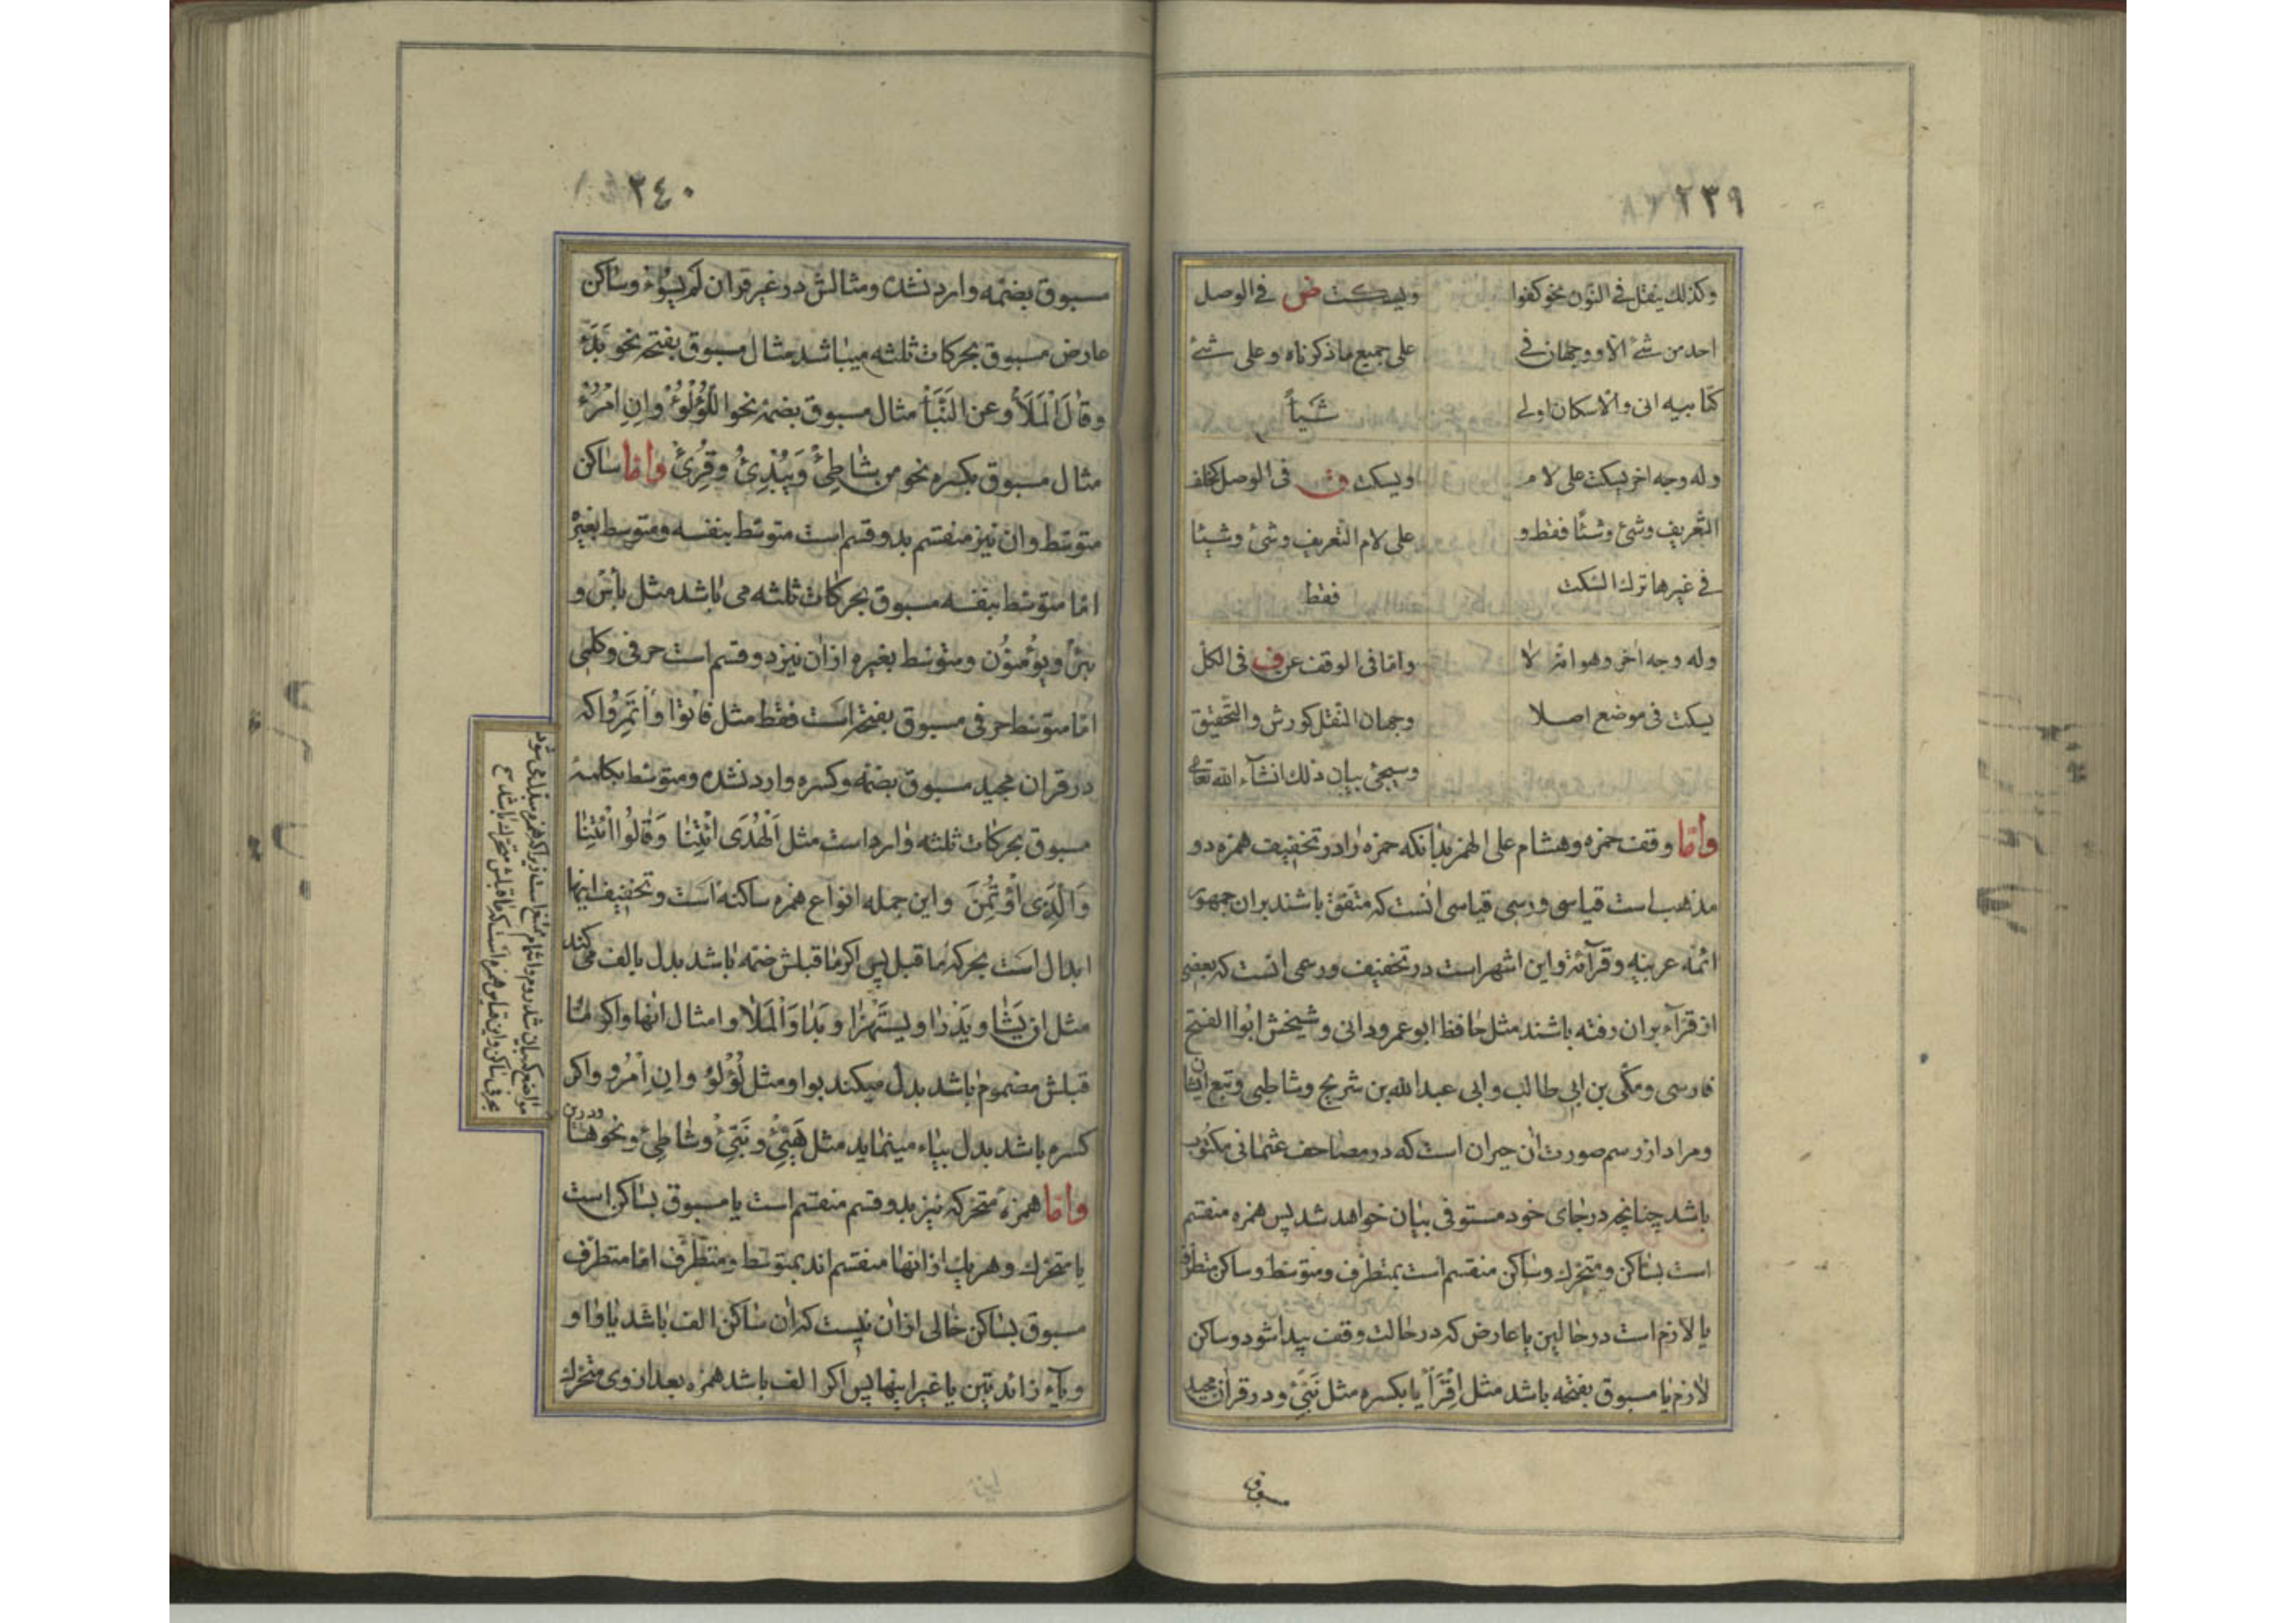 ٢٣٩
وكذلك ينقل في النون نحو كفوا
ويسكت ض في الوصل
احد من شئ الا ووجهان في
على جميع ما ذكرناه وعلى شئ
كتابيه انى والاسكان اولى
شيأ
وله وجه اخر يسكت على لام
ويسكت في الوصل بخلف
التعريف وشئ وشيئا فقط و
على لام التعريف وشئ وشيئا
في غيرها ترك السكت
فقط
وله وجه اخر وهو انه لا
واما في الوقف عن ف في الكل
يسكت في موضع اصلا
وجهان النقل كورش والتحقيق
وسيجئ بيان ذلك انشآء الله تعالى
واما وقف حمزه وهشام على الهمز بدانكه حمزه را در تخفيف همزه دو
مذهب است قياسى ورسمى قياسى انست كه متفق باشند بران جمهور
ائمه عربيه وقرآئة واين اشهر است در تخفيف ورسمى انست كه بعضى
از قرآء بران رفته باشند مثل حافظ ابو عمرو دانى وشيخش ابوا الفتح
فارسى ومكى بن ابى طالب وابى عبد الله بن شريح وشاطبى وتبع ايشان
ومراد از رسم صورت ان حيران است كه در مصاحف عثمانى مكتوب
باشد چنانچه در جاى خود مستوفى بيان خواهد شد پس همزه منقسم
است بساكن ومتحرك وساكن منقسم است بمتطرف ومتوسط وساكن متطرف
يا لازم است در حالين يا عارض كه در حالت وقف پيدا شود وساكن
لازم يا مسبوق بفتحه باشد مثل اِقْرَأْ يا بكسره مثل نَبِّئْ ودر قران مجيد
مسبوق
٢٤٠
مسبوق بضمه وارد نشده ومثالش در غير قران لم يسؤْ وساكن
عارض مسبوق بحركات ثلثه ميباشد مثال مسبوق بفتحه نحو بَدَءَ
وقال الْمَلَأُ وعن النَّبَأ مثال مسبوق بضمه نحو اللُّؤْلُؤُ وان امْرُؤٌ
مثال مسبوق بكسره نحو من شاطِئِ وَيُبْدِئُ وقُرِئَ واما ساكن
متوسط وان نيز منقسم بدو قسم است متوسط بنفسه ومتوسط بغيره
اما متوسط بنفسه مسبوق بحركات ثلثه مى باشد مثل بأس و
بئر ويؤمنون ومتوسط بغيره ازان نيز دو قسم است حرفى وكلمى
اما متوسط حرفى مسبوق بفتحه است فقط مثل فأتوا وَأْتَمِرُوا كه
در قران مجيد مسبوق بضمه وكسره وارد نشده ومتوسط بكلمه
مسبوق بحركات ثلثه وارد است مثل اَلْهُدَى ائْتِنا وَقالُوا ائْتِنا
وَالَّذِى اؤْتُمِنَ واين جمله انواع همزه ساكنه است وتخفيف اينها
ابدال است بحركه ما قبل پس اكر ما قبلش فتحه باشد بدل بالف مى كند
مثل ان يَشَا ويَذْرَا ويستَهْزَا وبَدَا وَالْمَلَا وامثال انها واكر ما
قبلش مضموم باشد بدل ميكند بواو مثل لُؤْلُؤ وان امْرُو واكر
كسره باشد بدل بياء مينمايد مثل هَيِّئْ ونَبِّئْ وشاطِئ ونحوها ودر اين
واما همزهٔ متحركه نيز بدو قسم منقسم است يا مسبوق بساكن است
يا متحرك وهر يك ازانها منقسم اند بمتوسط ومتطرف اما متطرف
مسبوق بساكن خالى ازان نيست كه ان ساكن الف باشد يا واو
ويآء زائدتين يا غير اينها پس اكر الف باشد همزه بعد از وى متحرك